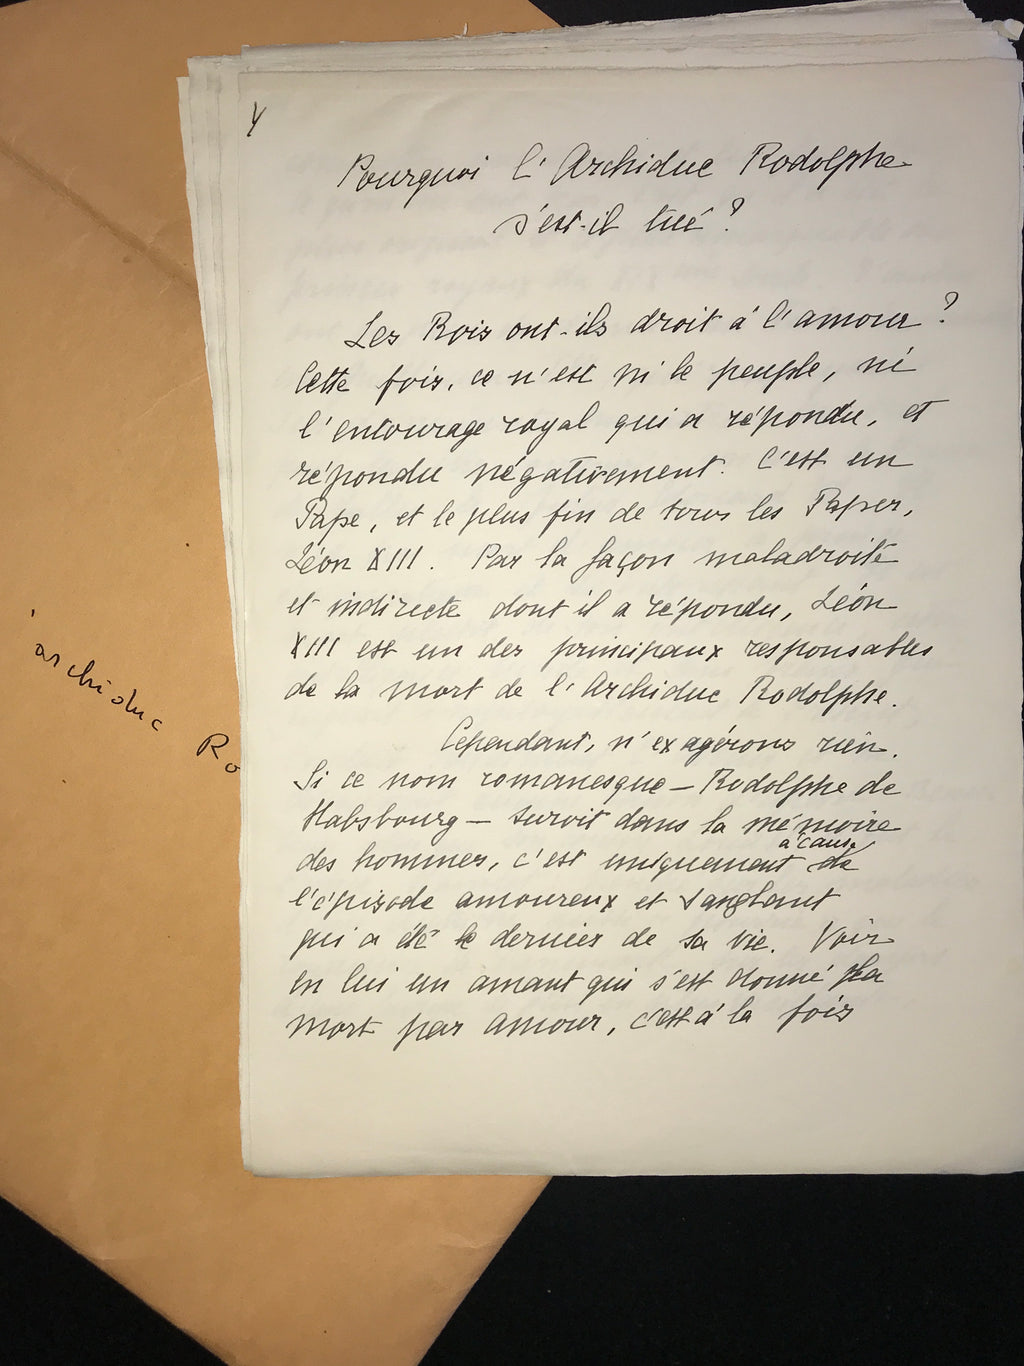 Pourquoi l'Archiduc Rodolphe
s'est-il tué ?
Les Rois ont-ils droit à l'amour ?
Cette fois, ce n'est ni le peuple, ni
l'entourage royal qui a répondu, et
répondu négativement. C'est un
Pape, et le plus fin de tous les Papes,
Léon XIII. Par la façon maladroite
et indirecte dont il a répondu, Léon
XIII est un des principaux responsables
de la mort de l'Archiduc Rodolphe.
Cependant, n'exagérons rien.
Si ce nom romanesque — Rodolphe de
Habsbourg — survit dans la mémoire
à cause
des hommes, c'est uniquement de
l'épisode amoureux et sanglant
qui a été le dernier de sa vie. Voir
en lui un amant qui s'est donné la
mort par amour, c'est à la fois
archiduc Ro